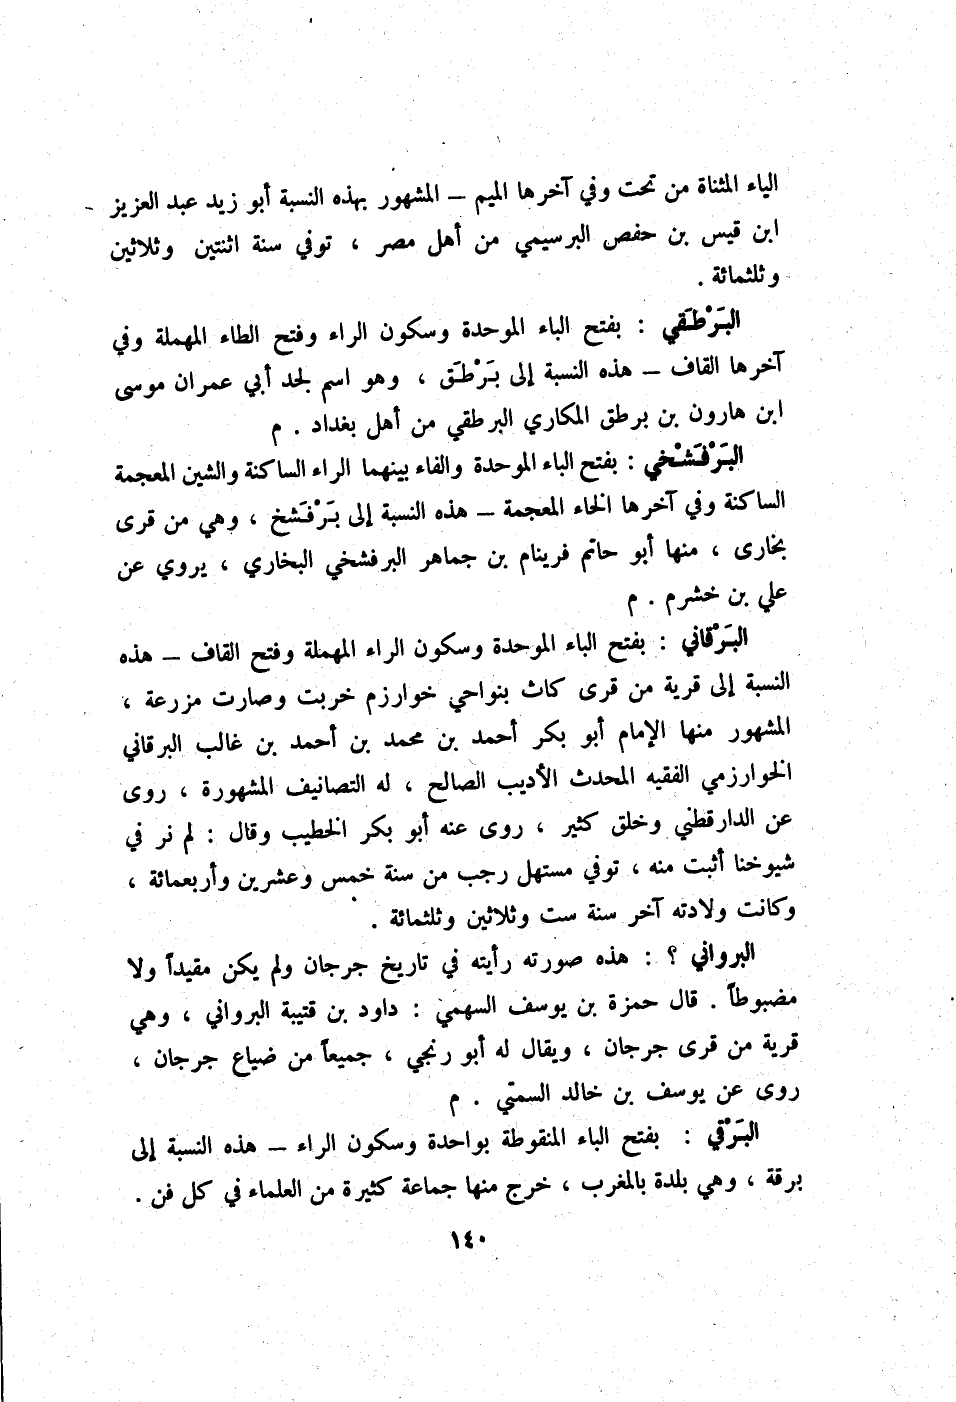 الياء المثناة من تحت وفي آخرها الميم – المشهور بهذه النسبة أبو زيد عبد العزيز
ابن قيس بن حفص البرسيمي من أهل مصر ، توفي سنة اثنتين وثلاثين
وثلثمائة .
البَرْطَقي : بفتح الباء الموحدة وسكون الراء وفتح الطاء المهملة وفي
آخرها القاف – هذه النسبة إلى بَرْطَق ، وهو اسم لجد أبي عمران موسى
ابن هارون بن برطق المكاري البرطقي من أهل بغداد . م
البَرْفَشْخي : بفتح الباء الموحدة والفاء بينهما الراء الساكنة والشين المعجمة
الساكنة وفي آخرها الخاء المعجمة – هذه النسبة إلى بَرْفَشخ ، وهي من قرى
بخارى ، منها أبو حاتم فرينام بن جماهر البرفشخي البخاري ، يروي عن
علي بن خشرم . م
البَرْقاني : بفتح الباء الموحدة وسكون الراء المهملة وفتح القاف – هذه
النسبة إلى قرية من قرى كاث بنواحي خوارزم خربت وصارت مزرعة ،
المشهور منها الإمام أبو بكر أحمد بن محمد بن أحمد بن غالب البرقاني
الخوارزمي الفقيه المحدث الأديب الصالح ، له التصانيف المشهورة ، روى
عن الدارقطني وخلق كثير ، روى عنه أبو بكر الخطيب وقال : لم نر في
شيوخنا أثبت منه ، توفي مستهل رجب من سنة خمس وعشرين وأربعمائة ،
وكانت ولادته آخر سنة ست وثلاثين وثلثمائة .
البرواني ؟ : هذه صورته رأيته في تاريخ جرجان ولم يكن مقيداً ولا
مضبوطاً . قال حمزة بن يوسف السهمي : داود بن قتيبة البرواني ، وهي
قرية من قرى جرجان ، ويقال له أبو رنجي ، جميعاً من ضياع جرجان ،
روى عن يوسف بن خالد السمتي . م
البَرْقي : بفتح الباء المنقوطة بواحدة وسكون الراء – هذه النسبة إلى
برقة ، وهي بلدة بالمغرب ، خرج منها جماعة كثيرة من العلماء في كل فن .
١٤٠